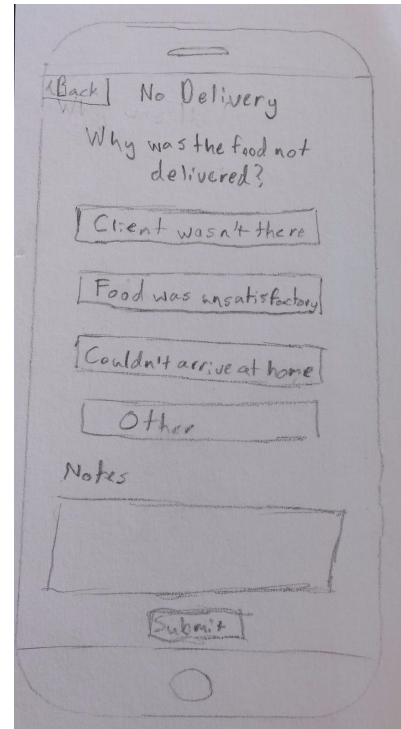 <Back
No Delivery
Why was the food not
delivered?
Client wasn't there
Food was unsatisfactory
Couldn't arrive at home
Other
Notes
Submit